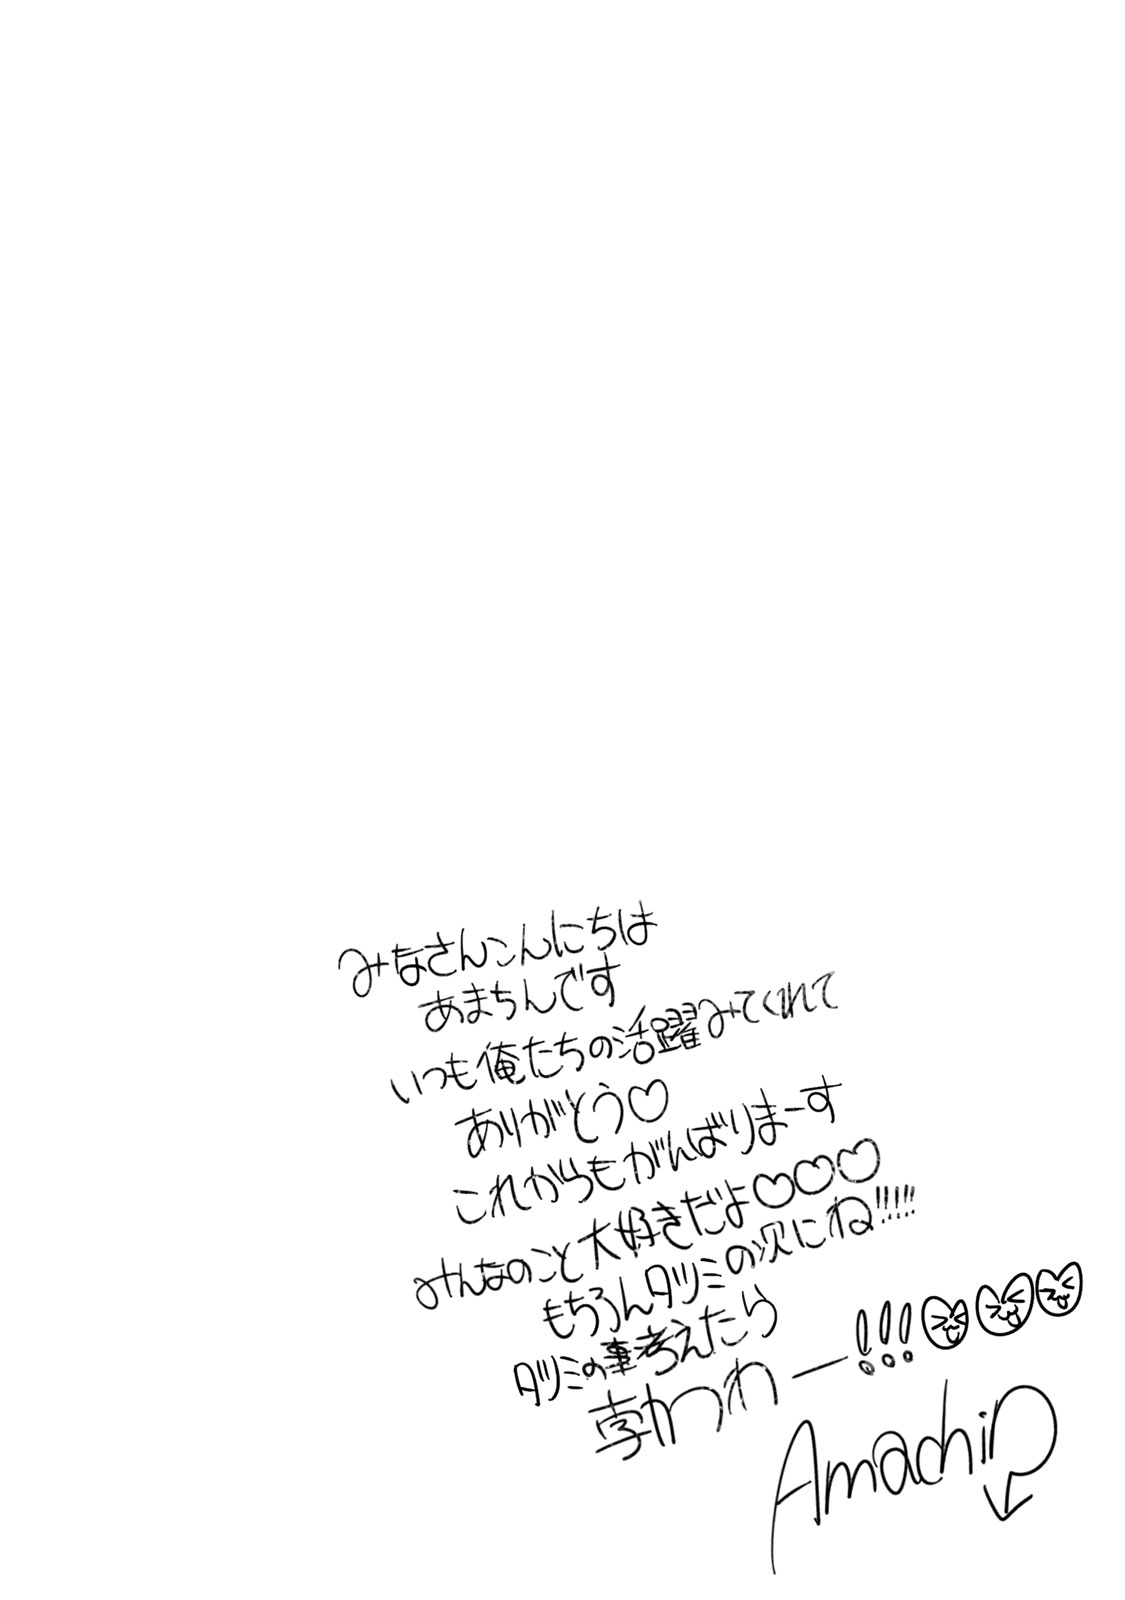 みなさんこんにちは
あまちんです
いつも俺たちの活躍みてくれて
ありがとう♡
これからもがんばりまーす
みんなのこと大好きだよ♡♡♡
もちろんタツミの次にね!!!!!
タツミの事考えたら
わー!!!
Amachin